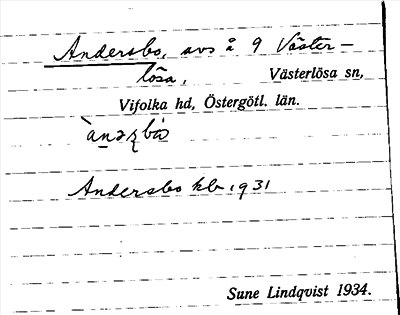 Andersbo, avs å 9 Väster-
lösa, Västerlösa sn,
Vifolka hd, Östergötl. län.
Andersbo hb 1931
Sune Lindqvist 1934.